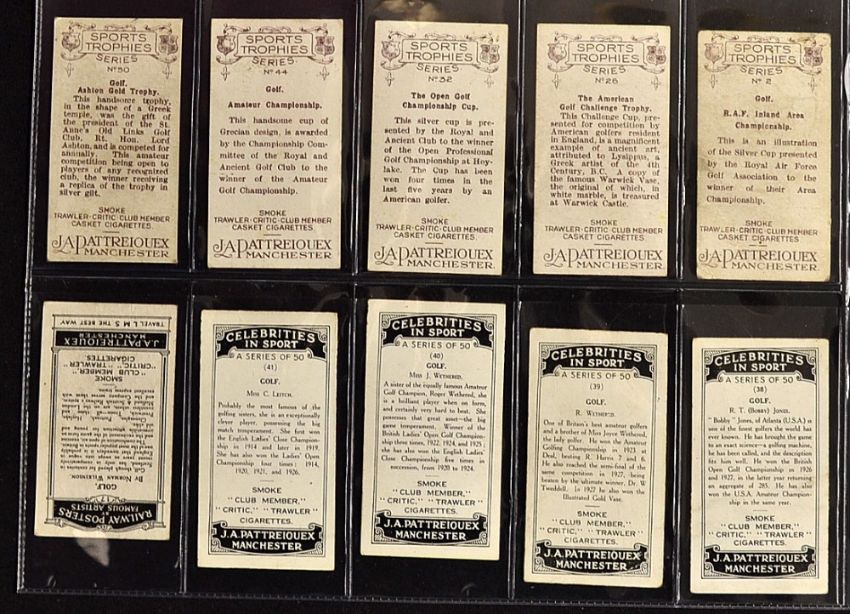 SPORTS
TROPHIES
SERIES
Nº50
Golf.
Ashton Gold Trophy.
This handsome trophy,
in the shape of a Greek
temple, was the gift of
the president of the St.
Anne's Old Links Golf
Club, Rt. Hon. Lord
Ashton, and is competed for
annually. This amateur
competition being open to
players of any recognized
club, the winner receiving
a replica of the trophy in
silver gilt.
SMOKE
TRAWLER·CRITIC·CLUB MEMBER
CASKET CIGARETTES.
J.A. PATTREIOUEX
MANCHESTER.
SPORTS
TROPHIES
SERIES
Nº 44
Golf.
Amateur Championship.
This handsome cup of
Grecian design, is awarded
by the Championship Com-
mittee of the Royal and
Ancient Golf Club to the
winner of the Amateur
Golf Championship.
SMOKE
TRAWLER·CRITIC·CLUB MEMBER
CASKET CIGARETTES.
J.A. PATTREIOUEX
MANCHESTER.
SPORTS
TROPHIES
SERIES
Nº32
The Open Golf
Championship Cup.
This silver cup is pre-
sented by the Royal and
Ancient Club to the winner
of the Open Professional
Golf Championship at Hoy-
lake. The Cup has been
won four times in the
last five years by an
American golfer.
SMOKE
TRAWLER·CRITIC·CLUB MEMBER
CASKET CIGARETTES.
J.A. PATTREIOUEX
MANCHESTER.
SPORTS
TROPHIES
SERIES
Nº26
The American
Golf Challenge Trophy.
This Challenge Cup, pre-
sented for competition by
American golfers resident
in England, is a magnificent
example of ancient art,
attributed to Lysippus, a
Greek artist of the 4th
Century, B.C. A copy of
the famous Warwick Vase,
the original of which, in
white marble, is treasured
at Warwick Castle.
SMOKE
TRAWLER·CRITIC·CLUB MEMBER
CASKET CIGARETTES.
J.A. PATTREIOUEX
MANCHESTER.
SPORTS
TROPHIES
SERIES
Nº 2
Golf.
R.A.F. Inland Area
Championship.
This is an illustration
of the Silver Cup presented
by the Royal Air Force
Golf Association to the
winner of their Area
Championship.
SMOKE
TRAWLER·CRITIC·CLUB MEMBER
CASKET CIGARETTES.
J.A. PATTREIOUEX
MANCHESTER.
RAILWAY POSTERS
BY FAMOUS ARTISTS
17
GOLF
By NORMAN WILKINSON
SMOKE
"CLUB MEMBER,"
"CRITIC," "TRAWLER"
CIGARETTES
J.A. PATTREIOUEX
MANCHESTER
TRAVEL L M S THE BEST WAY
CELEBRITIES
IN SPORT
A SERIES OF 50
(41)
GOLF.
Miss C. Leitch.
Probably the most famous of the
golfing sisters, she is an exceptionally
clever player, possessing the big
match temperament. She first won
the English Ladies' Close Champion-
ship in 1914 and later in 1919.
She has also won the Ladies' Open
Championship four times: 1914,
1920, 1921, and 1926.
SMOKE
"CLUB MEMBER,"
"CRITIC," "TRAWLER"
CIGARETTES.
J.A. PATTREIOUEX
MANCHESTER
CELEBRITIES
IN SPORT
A SERIES OF 50
(40)
GOLF.
Miss J. Wethered.
A sister of the equally famous Amateur
Golf Champion, Roger Wethered, she
is a brilliant player when on form,
and certainly very hard to beat. She
possesses that great asset—the big
game temperament. Winner of the
British Ladies' Open Golf Champion-
ship three times, 1922, 1924, and 1925;
she has also won the English Ladies'
Close Championship five times in
succession, from 1920 to 1924.
SMOKE
"CLUB MEMBER,"
"CRITIC," "TRAWLER"
CIGARETTES.
J.A. PATTREIOUEX
MANCHESTER
CELEBRITIES
IN SPORT
A SERIES OF 50
(39)
GOLF.
R. Wethered.
One of Britain's best amateur golfers
and a brother of Miss Joyce Wethered,
the lady golfer. He won the Amateur
Golf Championship in 1923 at
Deal, beating R. Harris 7 and 6.
He also reached the semi-final of the
same competition in 1927, being
beaten by the ultimate winner, Dr. W.
Tweddell. In 1927 he also won the
Illustrated Golf Vase.
SMOKE
"CLUB MEMBER,"
"CRITIC," "TRAWLER"
CIGARETTES.
J.A. PATTREIOUEX
MANCHESTER.
CELEBRITIES
IN SPORT
A SERIES OF 50
(38)
GOLF.
R. T. (Bobby) Jones.
"Bobby" Jones, of Atlanta (U.S.A.) is
one of the finest golfers the world has
ever known. He has brought the game
to an exact science—a golfing machine,
he has been called, and the description
fits him well. He won the British
Open Golf Championship in 1926
and 1927, in the latter year returning
an aggregate of 285. He has also
won the U.S.A. Amateur Champion-
ship in the same year.
SMOKE
"CLUB MEMBER,"
"CRITIC," "TRAWLER"
CIGARETTES.
J.A. PATTREIOUEX
MANCHESTER.